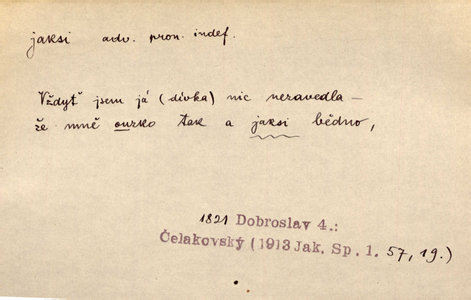 jaksi adv. pron. indef.
Vždyť jsem já (dívka) nic nezavedla –
že mně ouzko tak a jaksi bědno,
1821 Dobroslav 4.:
Čelakovský (1913 Jak. Sp. 1. 57, 19.)